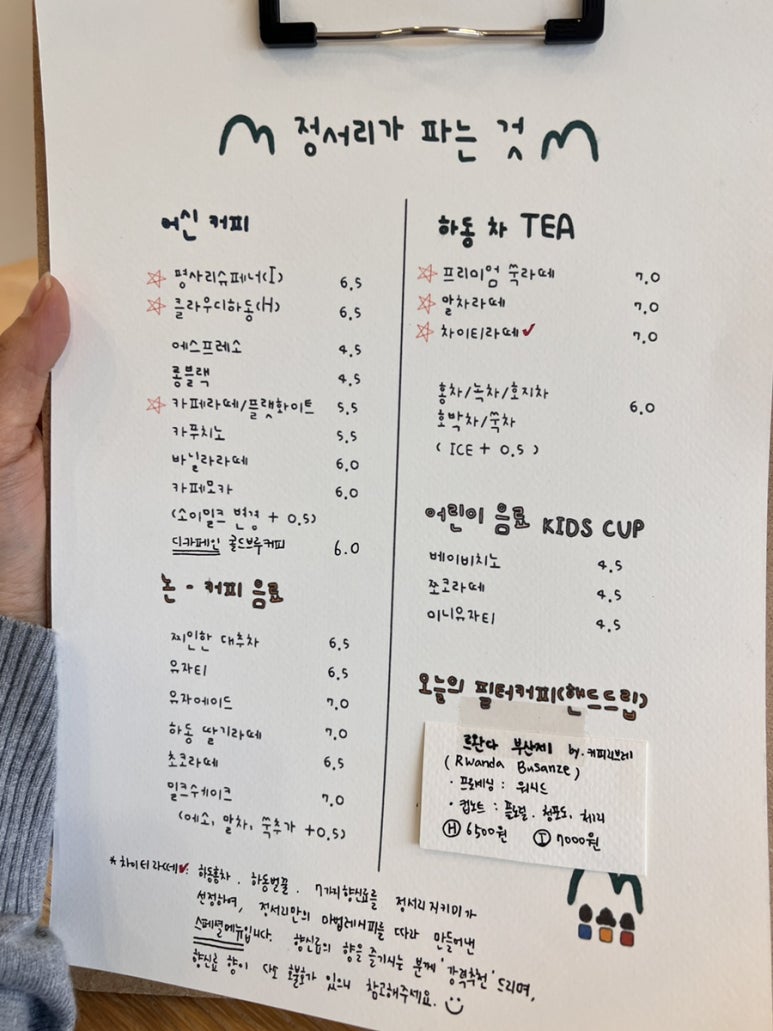 정서리가 파는 것
어신 커피
평사리슈페너(I) 6.5
클라우디하동(H) 6.5
에스프레소 4.5
롱블랙 4.5
카페라떼/플랫화이트 5.5
카푸치노 5.5
바닐라라떼 6.0
카페모카 6.0
(소이밀크 변경 + 0.5)
디카페인 콜드브루커피 6.0
논-커피 음료
찌인한 대추차 6.5
유자티 6.5
유자에이드 7.0
하동 딸기라떼 7.0
초코라떼 6.5
밀크쉐이크 7.0
(에소, 말차, 쑥추가 +0.5)
하동 차 TEA
프리미엄 쑥라떼 7.0
말차라떼 7.0
차이티라떼✓ 7.0
홍차/녹차/호지차
호박차/쑥차 6.0
(ICE + 0.5)
어린이 음료 KIDS CUP
베이비치노 4.5
쪼코라떼 4.5
미니유자티 4.5
오늘의 필터커피(핸드드립)
르완다 부산제 by.커피리브레
(Rwanda Busanze)
· 프로세싱 : 워시드
· 컵노트 : 플로럴. 청포도. 체리
Ⓗ 6500원 Ⓘ 7000원
*차이티라떼✓: 하동홍차. 하동벌꿀. 7가지향신료를 정서리지키미가
선정하여, 정서리만의 마법레시피를 따라 만들어낸
스페셜메뉴입니다. 향신료의 향을 즐기시는 분께 '강력추천' 드리며,
향신료 향이 다소 호불호가 있으니 참고해주세요.